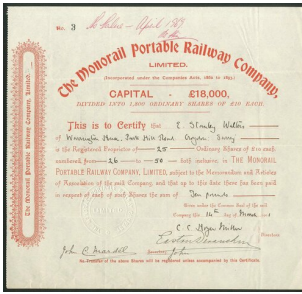 No. 3
The Monorail Portable Railway Company,
LIMITED.
(Incorporated under the Companies Acts, 1862 to 1893).
CAPITAL - £18,000,
DIVIDED INTO 1,800 ORDINARY SHARES OF £10 EACH.
This is to Certify that E. Stanley Walters
Park Hill Road Croydon Surrey
is the Registered Proprietor of 25 Ordinary Shares of £10 each
numbered from 26 to 50 both inclusive, in THE MONORAIL
PORTABLE RAILWAY COMPANY, LIMITED, subject to the Memorandum and Articles
of Association of the said Company, and that up to this date there has been paid
in respect of each of such Shares the sum of Ten pounds
Given under the Common Seal of the said
Company this 14th day of March
Directors.
Secretary.
No Transfer of the above Shares will be registered unless accompanied by this Certificate.
The Monorail Portable Railway Company, Limited.